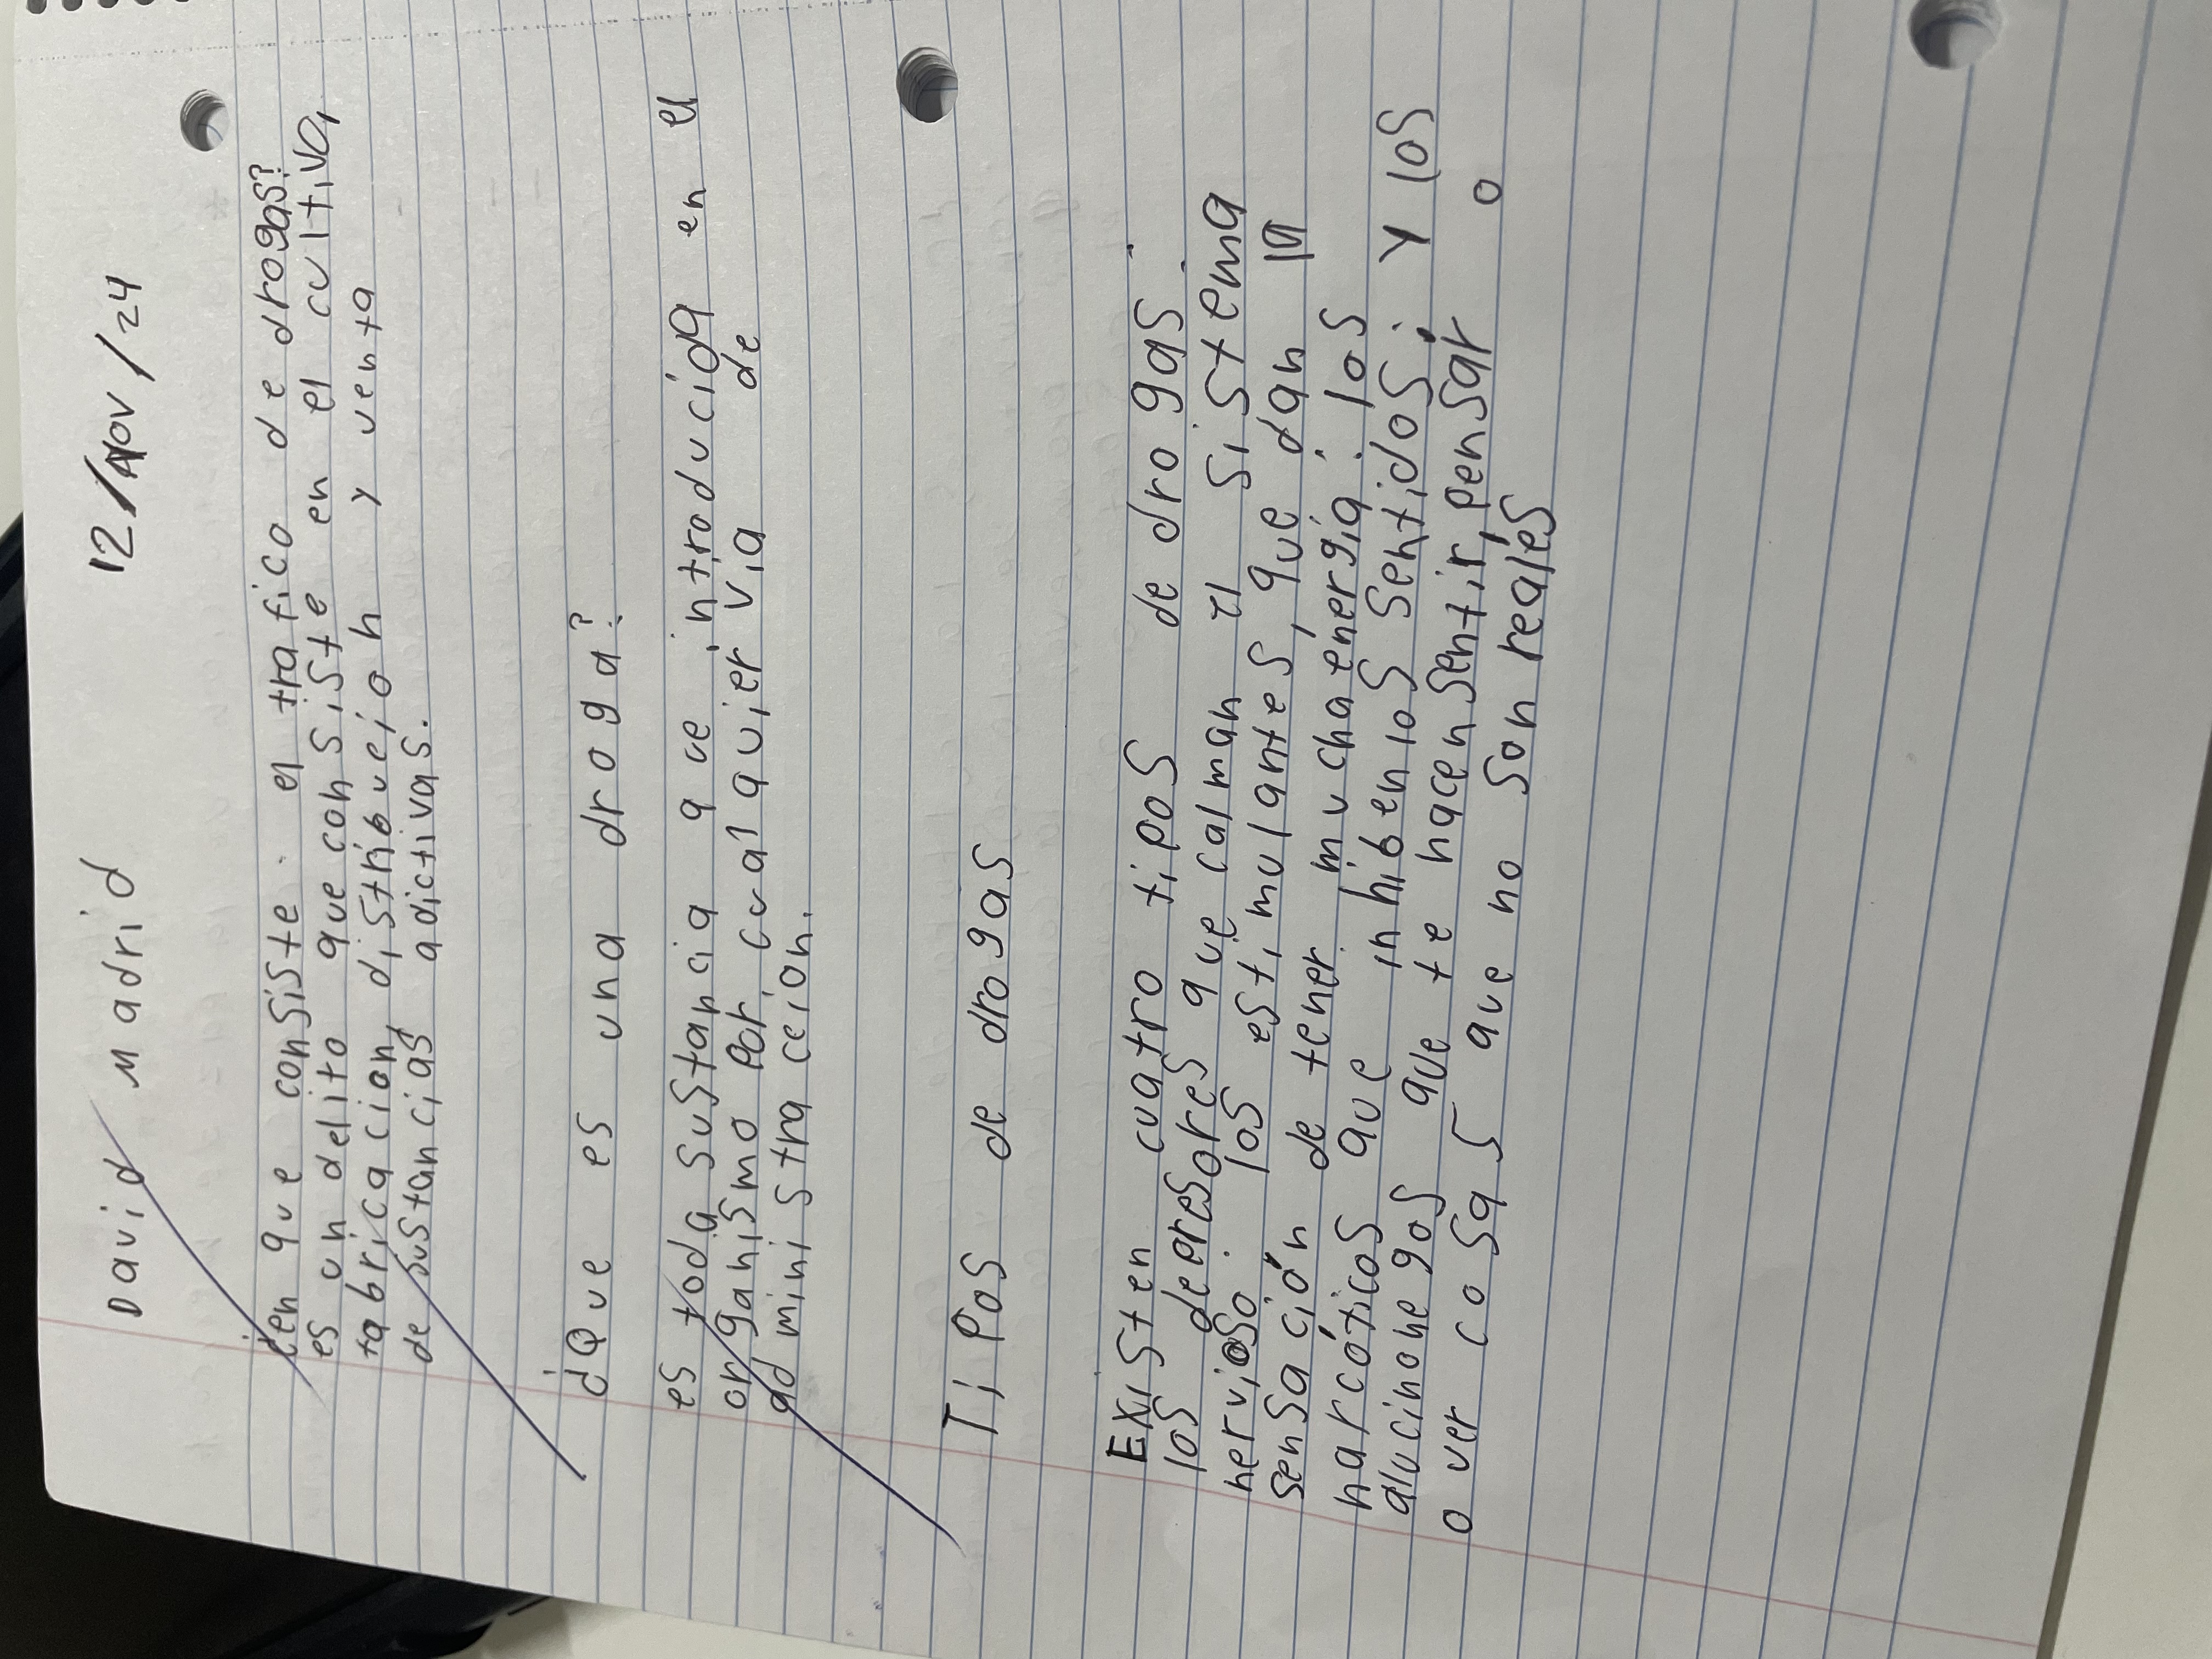 David Madrid 12/Nov/24
¿en que consiste el trafico de drogas?
es un delito que consiste en el cultivo,
fabricacion, distribucion y venta
de sustancias adictivas.
¿Que es una droga?
es toda sustancia que introducida en el
organismo por cualquier via de
administraccion.
Tipos de drogas
Existen cuatro tipos de drogas:
los deeresores que calman el sistema
nervioso: los estimulantes, que dan la
sensación de tener mucha energia; los
narcóticos que inhiben los sentidos; y los
alucinonegos que te hacen sentir, pensar o
o ver cosas que no son reales